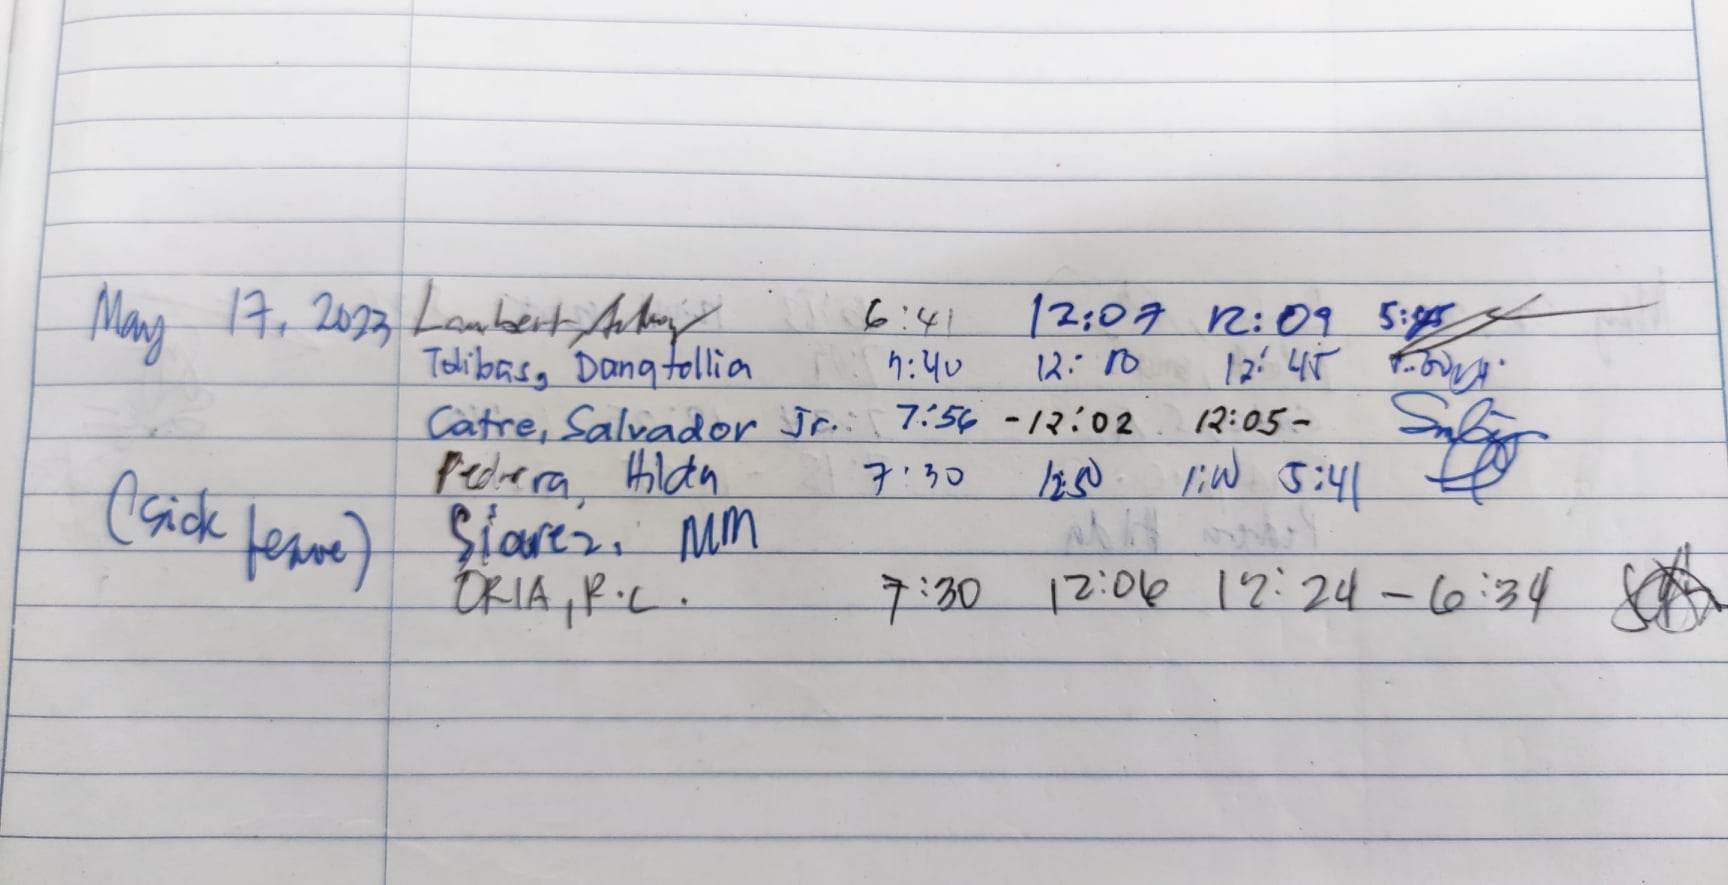 May 17, 2023 Lambert 6:41 12:07 12:09 5:45
Tolibas, Dangtollia 7:40 12:10 12:45
Catre, Salvador Jr. 7:56 - 12:02 12:05 -
Pedrera, Hilda 7:30 12:50 5:41
(Sick leave) Siarez, MM
ORIA, R.C. 7:30 12:06 12:24 - 6:34